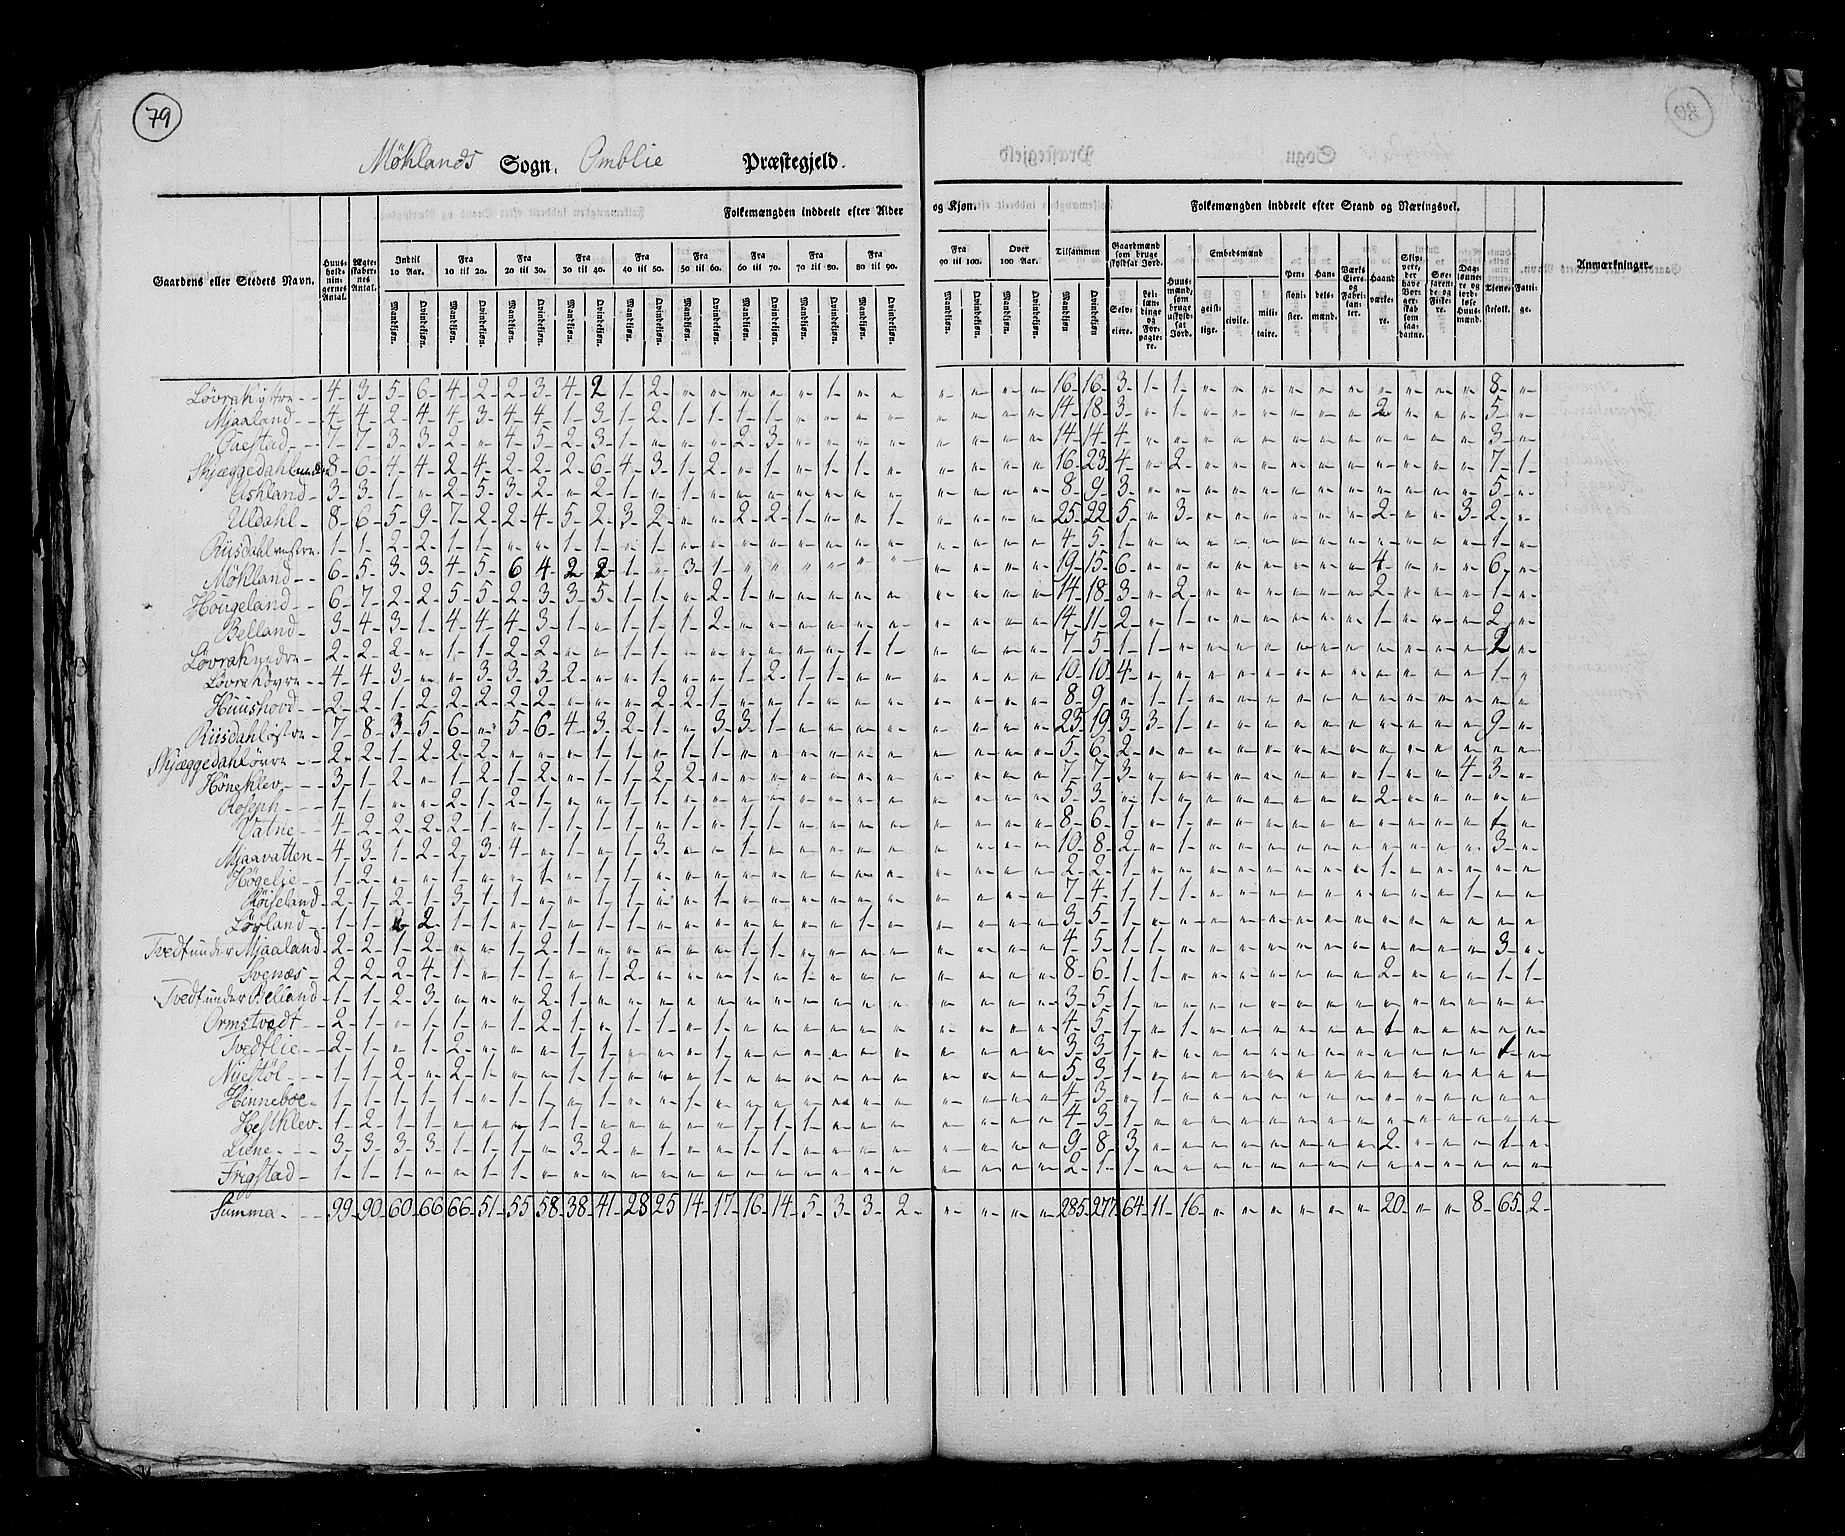 79
Møhlands Sogn. Omblie Præstegjeld.
Folkemængden inddeelt efter Alder og Kjøn. Folkemængden inddeelt efter Stand og Næringsvei.
Gaardens eller Stedets Navn. Huusholdningernes Antal. Ægteskabernes Antal. Indtil 10 Aar. Fra 10 til 20. Fra 20 til 30. Fra 30 til 40. Fra 40 til 50. Fra 50 til 60. Fra 60 til 70. Fra 70 til 80. Fra 80 til 90. Fra 90 til 100. Over 100 Aar. Tilsammen Gaardmænd som bruge skyldsat Jord. Huusmænd, som bruge uskyldsat Jord. Embedsmænd Pensionister. Handelsmænd. Værks Eiere og Fabrikanter. Haandværkere. Skippere, der have Borgerskab som saadanne. Søefarende og Fiskere. Daglønnere og jordløse Huusmænd. Tjenestefolk. Fattige. Anmærkninger.
Mandkjøn. Qvindekjøn. Selveiere. Leilændinge og Forpagtere. geistlige. civile. militaire.
Løvrak ystre - 4 - 3 - 5 - 6 - 4 - 2 - 2 - 3 - 4 - 2 - 1 - 2 - " " " " " 1 - " " " " " " 16 - 16 - 3 - 1 - 1 - " " " " " " " " " " 8 - "
Mjaaland - 4 - 4 - 2 - 4 - 4 - 3 - 4 - 4 - 1 - 3 - 1 - 2 - 1 - 1 - 1 - 1 - " " " " " " " " 14 - 18 - 3 - " 1 - " " " " " " 2 - " " " 5 - "
Skjæggedahl nedre 8 - 6 - 4 - 4 - 2 - 4 - 2 - 2 - 2 - 6 - 4 - 3 - 1 - 2 - " 1 - " 1 - 1 - " " " " " 16 - 23 - 4 - " 2 - " " " " " " " " " " 7 - 1 -
Ashland - 3 - 3 - 1 - " 2 - 5 - 3 - 2 - " 2 - 1 - " 1 - " " " " " " " " " " " 8 - 9 - 3 - " " " " " " " " " " " " 5 - "
Uldahl - 8 - 6 - 5 - 9 - 7 - 2 - 2 - 4 - 5 - 2 - 3 - 2 - " " 2 - 2 - 1 - " " 1 - " " " " 25 - 22 - 5 - " 3 - " " " " " " 2 - " " 3 - 2 - "
Riisdahl vestre 1 - 1 - 2 - 2 - 1 - 1 - " " 1 - 1 - " 1 - " " " " " " " " " " " " 4 - 5 - 1 - " " " " " " " " " " " " 1 - "
Møhland - 6 - 5 - 3 - 3 - 4 - 5 - 6 4 - 2 - 2 - 1 - " 3 - 1 - " " " " " " " " " " 19 - 15 - 6 - " " " " " " " " 4 - " " " 6 - "
Hougeland - 6 - 7 - 2 - 2 - 5 - 5 - 2 - 3 - 3 - 5 - 1 - 1 - " 2 - 1 - " " " " " " " " " 14 - 18 - 3 - " 2 - " " " " " " 2 - " " " 1 - "
Belland - 3 - 4 - 3 - 1 - 4 - 4 - 4 - 3 - 1 - " 1 - 1 - 1 - 2 - " " " " " " " " " " 14 - 11 - 2 - " 1 - " " " " " " 1 - " " " 2 - "
Løvrak nedre - 2 - 2 - 2 - " 1 - 1 - 2 - 2 - " " 1 - 1 - " " " " " " 1 - 1 - " " " " 7 - 5 - 1 - 1 - " " " " " " " " " " " 2 "
Løvrak øvre - 4 - 4 - 3 - " " 3 - 3 - 3 - 2 - " " 1 - " " 1 - 2 - 1 - 1 - " " " " " " 10 - 10 - 4 - " " " " " " " " " " " " 1 - "
Huushovd - 2 - 2 - 1 - 2 - 2 - 2 - 2 - 2 - " " " 2 - 2 - 1 - " " " " " " " " " " 8 - 9 - " 1 - 1 - " " " " " " " " " " " "
Riisdahl østre - 7 - 8 - 3 - 5 - 6 - " 5 - 6 - 4 - 3 - 2 - 1 - " 3 - 3 - 1 - " " " " " " " " 23 - 19 - 3 - 3 - 1 - " " " " " " " " " " 9 - "
Skjæggedahl øvre - 2 - 2 - 1 - 2 - 2 - 2 - " " " 1 - 1 - " 1 - 1 - " " " " " " " " " " 5 - 6 - 2 - " " " " " " " " " " " " " "
Høneklev - 3 - 1 - 2 - " 1 - 2 - 1 - 2 - " 1 - 1 - 2 - 2 - " " " " " " " " " " " 7 - 7 - 3 - " " " " " " " " 1 - " " 4 - 3 - "
Roseph - 1 - 1 - " " 2 - 1 - 2 - 1 - " " 1 - 1 - " " " " " " " " " " " " 5 - 3 - " 1 - " " " " " " " 2 - " " " " "
Vatne - 4 - 2 - 2 - 2 - 2 - 1 - " 1 - 1 - 1 - " 1 - " 1 - 1 - 1 - " " " " " " " " 8 - 6 - 1 - " 1 - " " " " " " " " " " 1 - "
Mjaavatten - 4 - 3 - 1 - 2 - 2 - 3 - 4 - " 1 - " 1 - 3 - " " 1 - " " " " " " " " " 10 - 8 - 2 - " 1 - " " " " " " " " " " 3 - "
Høgelie - 1 - 2 - " " 1 - " " 1 - " 1 - 1 - " " " " " " " " " " " " " 2 - 2 - 1 - " " " " " " " " 1 - " " " " "
Røiseland - 2 - 1 - 2 - 1 - 3 - 1 - 1 - " 1 - 1 - " " " 1 - " " " " " " " " " " 7 - 4 - 1 - 1 - 1 - " " " " " " " " " 1 - " "
Løvland - 1 - 1 - " 2 - 1 - 1 - " 1 - " 1 - 1 - " " " " " " " 1 - " " " " " 3 - 5 - 1 - " " " " " " " " " " " " " "
Tvedt under Mjaaland - 2 - 2 - 1 - 2 - " " 1 - 2 - 1 - " " " " " 1 - 1 - " " " " " " " " 4 - 5 - 1 - 1 - " " " " " " " " " " " 3 - "
Svenæs - 2 - 2 - 2 - 4 - 1 - " 1 - 1 - " 1 - 2 - " " " 1 - " 1 - " " " " " " " 8 - 6 - 1 - 1 - " " " " " " " 2 - " " " 1 - 1 -
Tvedt under Belland - 1 - 1 - 2 - 3 - " " " 2 - 1 - " " " " " " " " " " " " " " " 3 - 5 - 1 - " " " " " " " " " " " " " "
Ormstvedt - 2 - 1 - " 1 - 1 - " 1 - 2 - 1 - " 1 - 1 - " 1 - " " " " " " " " " " 4 - 5 - 1 - " 1 - " " " " " " 1 - " " " " "
Tvedtlie - 2 - 1 - " 1 - 2 - " " " 1 - 1 - " " " 1 - " " " " " " " " " " 3 - 3 - 1 - " " " " " " " " " " " " 1 - "
Nyestøl - 1 - 1 - 2 - " 2 - 1 - " " 1 - 1 - " " " 1 - " " " " " " " " " " 5 - 3 - 1 - " " " " " " " " " " " " " "
Hinneboe - 1 - 1 - 1 - 1 - 1 - " 1 - 1 - " 1 - " " 1 - " " " " " " " " " " " 4 - 3 - " 1 - " " " " " " " " " " " " "
Hestklev - 1 - 2 - 1 - 1 - " " " 1 - 1 - " " " " " 1 - 1 - 1 - " " " " " " " 4 - 3 - 1 - " " " " " " " " " " " " " "
Liene - 3 - 3 - 3 - 3 - 1 - 1 - 1 - " 3 - 2 - " 1 - " " 1 - 1 - " " " " " " " " 9 - 8 - 3 - " " " " " " " " 2 - " " " 1 - "
Frigstad - 1 - 1 - 1 - " " 1 - 1 - " " " " " " " " " " " " " " " " " 2 - 1 - 1 - " " " " " " " " " " " " " "
Summa - 99 - 90 - 60 - 66 - 66 - 51 - 55 - 58 - 38 - 41 - 28 25 - 14 - 17 - 16 - 14 - 5 - 3 - 3 - 2 - " " " " 285 - 277 - 64 - 11 - 16 - " " " " " " 20 - " " 8 - 65 - 2 -